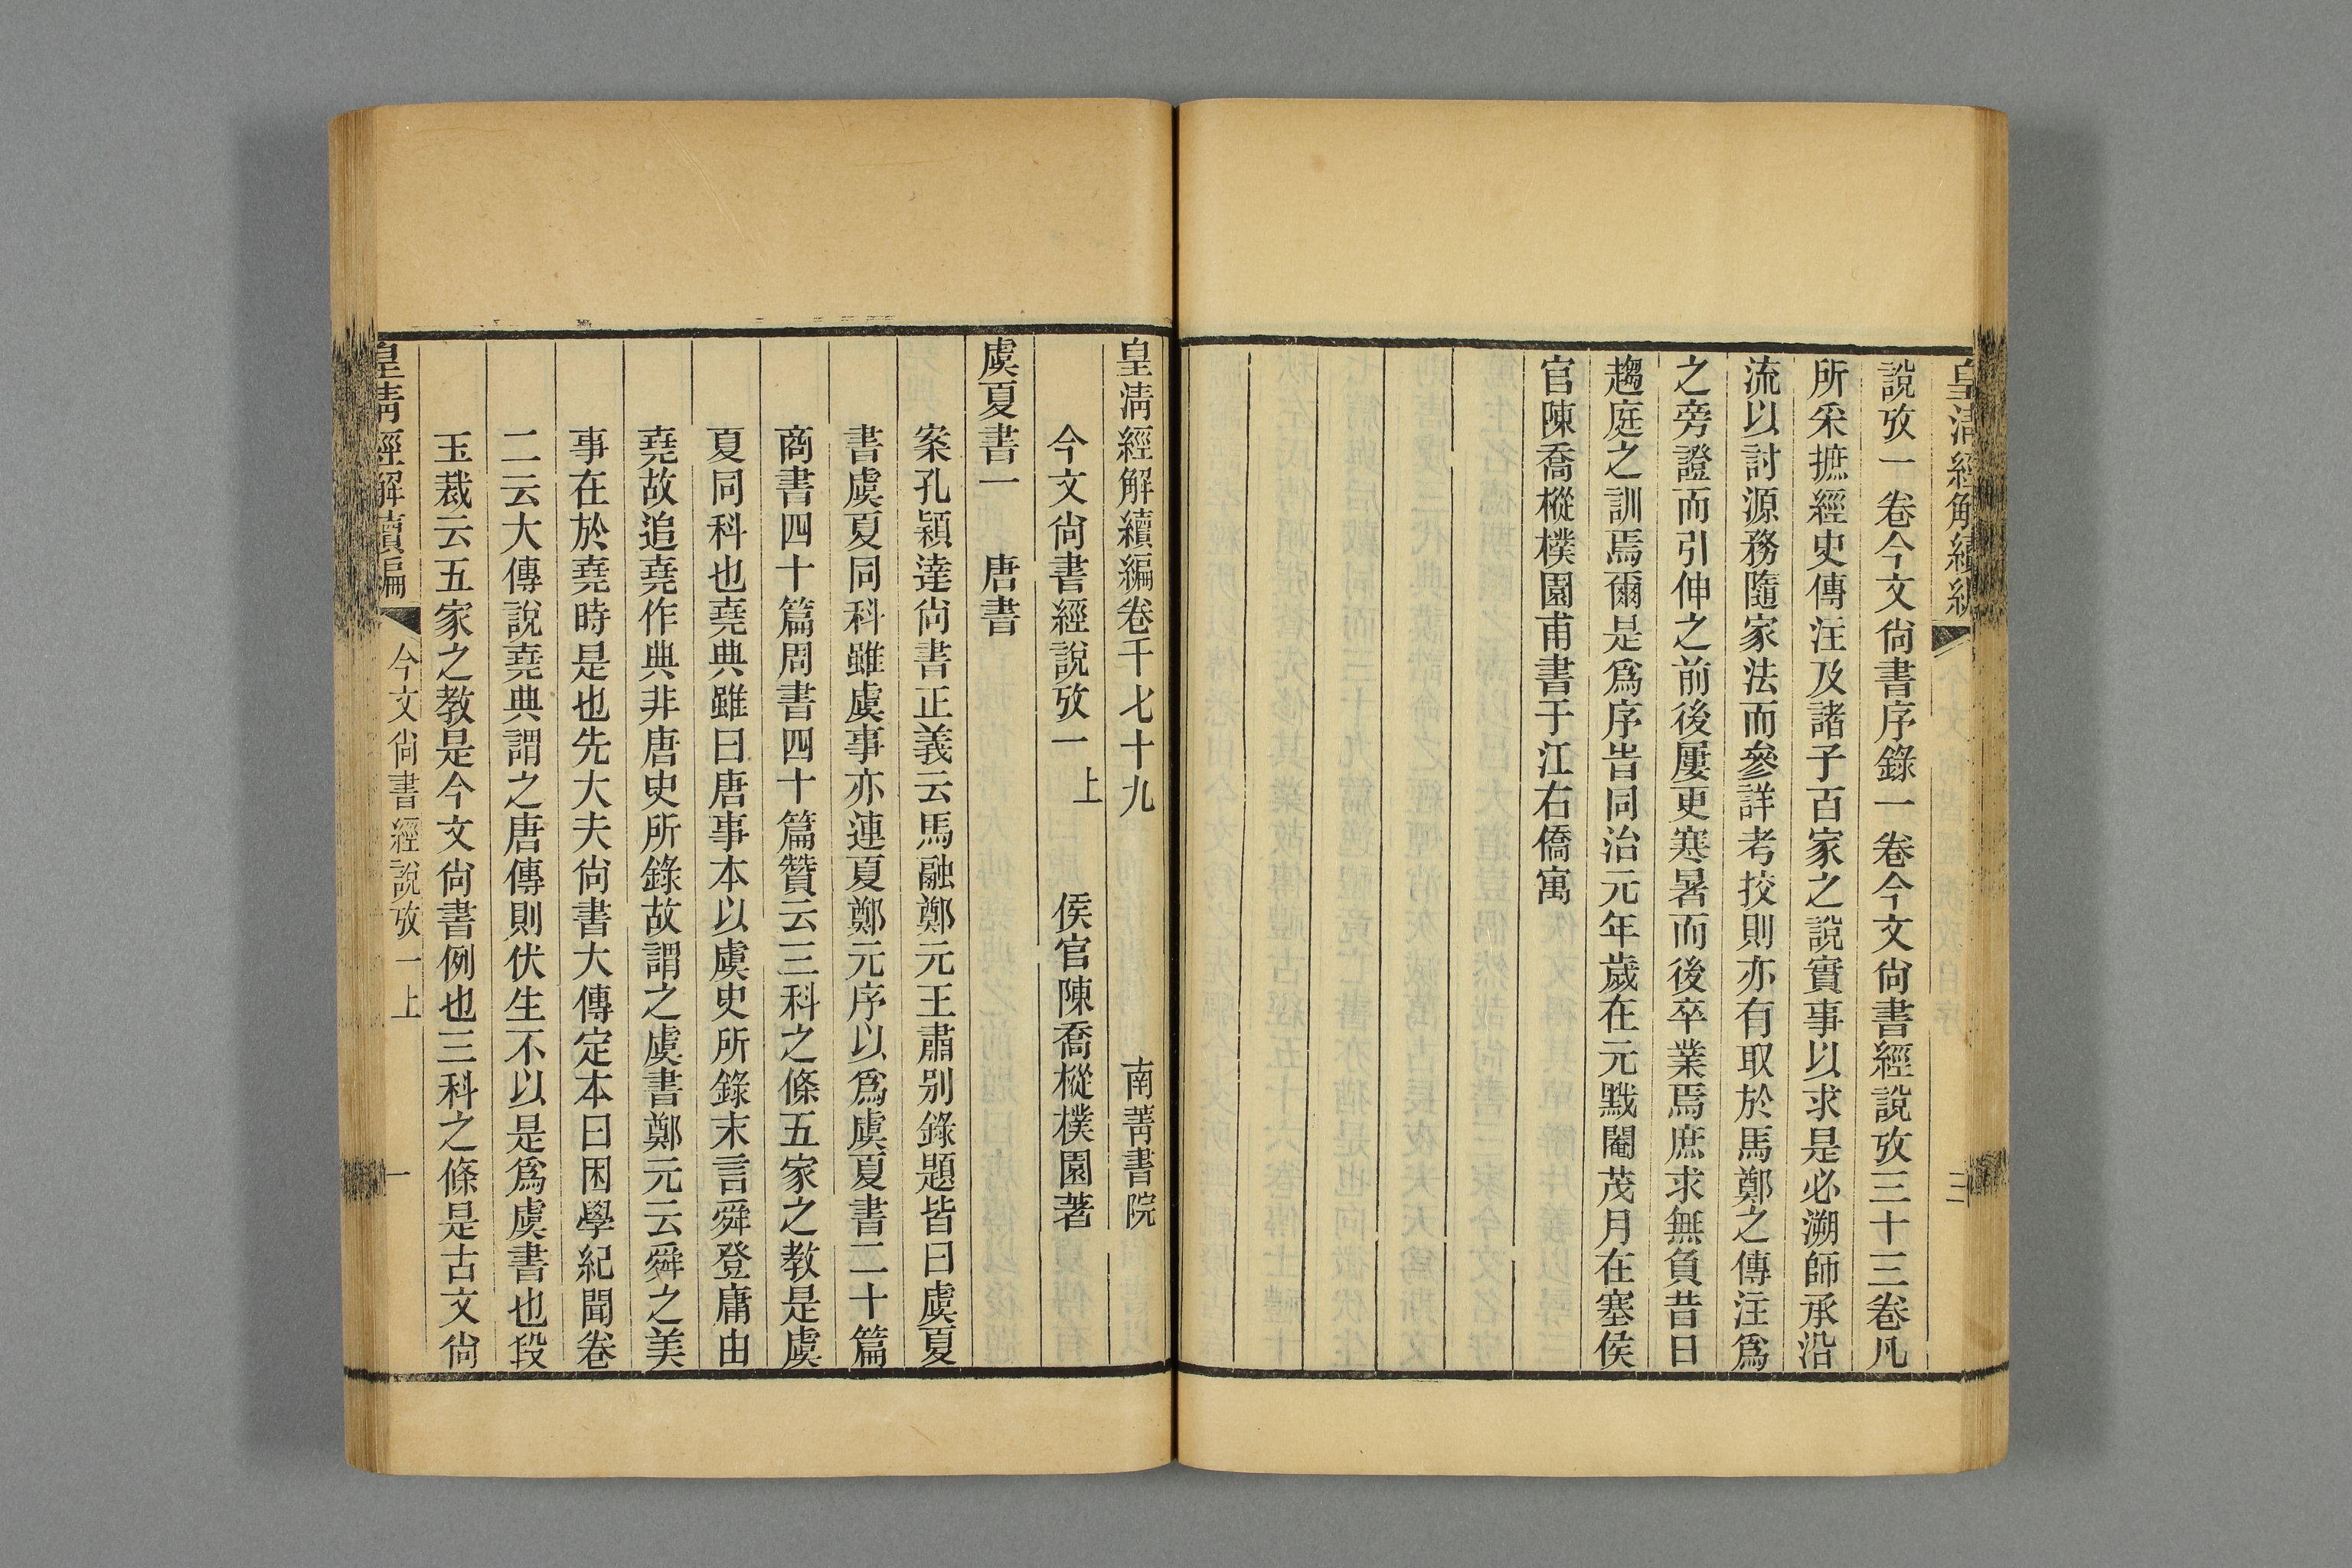 皇清經解續編
三
說攷一卷今文尙書序錄一卷今文尙書經說攷三十三卷凡
所采摭經史傳注及諸子百家之說實事以求是必溯師承沿
流以討源務隨家法而參詳考挍則亦有取於馬鄭之傳注爲
之旁證而引伸之前後屢更寒暑而後卒業焉庶求無負昔日
趨庭之訓焉爾是爲序旹同治元年歲在元黓閹茂月在塞侯
官陳喬樅樸園甫書于江右僑寓
皇淸經解續編卷千七十九 南菁書院
今文尙書經說攷一上 侯官陳喬樅樸園著
虞夏書一 唐書
案孔穎達尙書正義云馬融鄭元王肅别錄題皆曰虞夏
書虞夏同科雖虞事亦連夏鄭元序以爲虞夏書二十篇
商書四十篇周書四十篇贊云三科之條五家之教是虞
夏同科也堯典雖曰唐事本以虞史所錄末言舜登庸由
堯故追堯作典非唐史所錄故謂之虞書鄭元云舜之美
事在於堯時是也先大夫尙書大傳定本曰困學紀聞卷
二云大傳說堯典謂之唐傳則伏生不以是爲虞書也段
玉裁云五家之教是今文尙書例也三科之條是古文尙
皇清經解續編 今文尙書經說攷一上 一